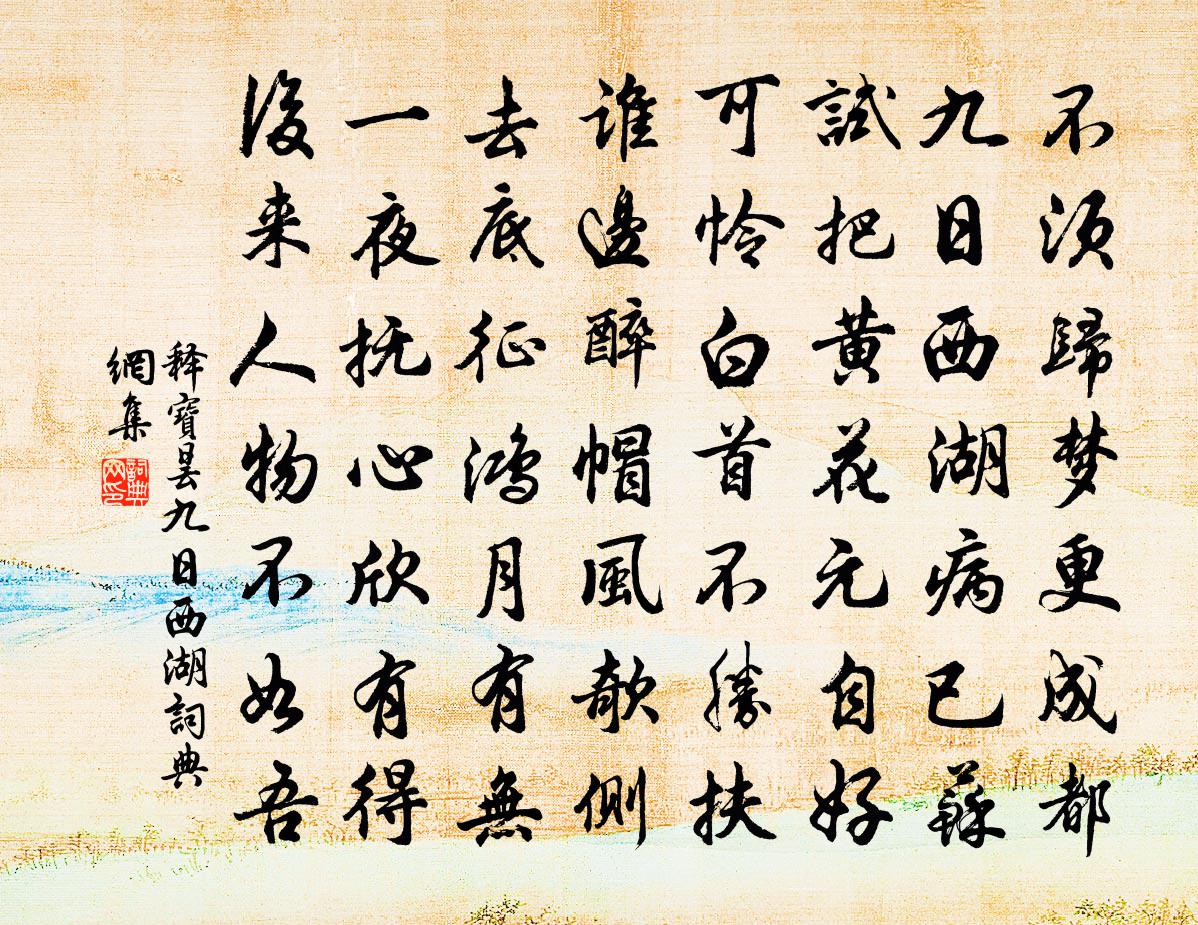 不须歸梦更成都
九日西湖病已蘇
試把黄花元自好
可怜白首不勝扶
誰邊醉帽風欹側
去底征鸿月有無
一夜抚心欣有得
後来人物不如吾
释寶昙九日西湖詞典
網集
詞典网印